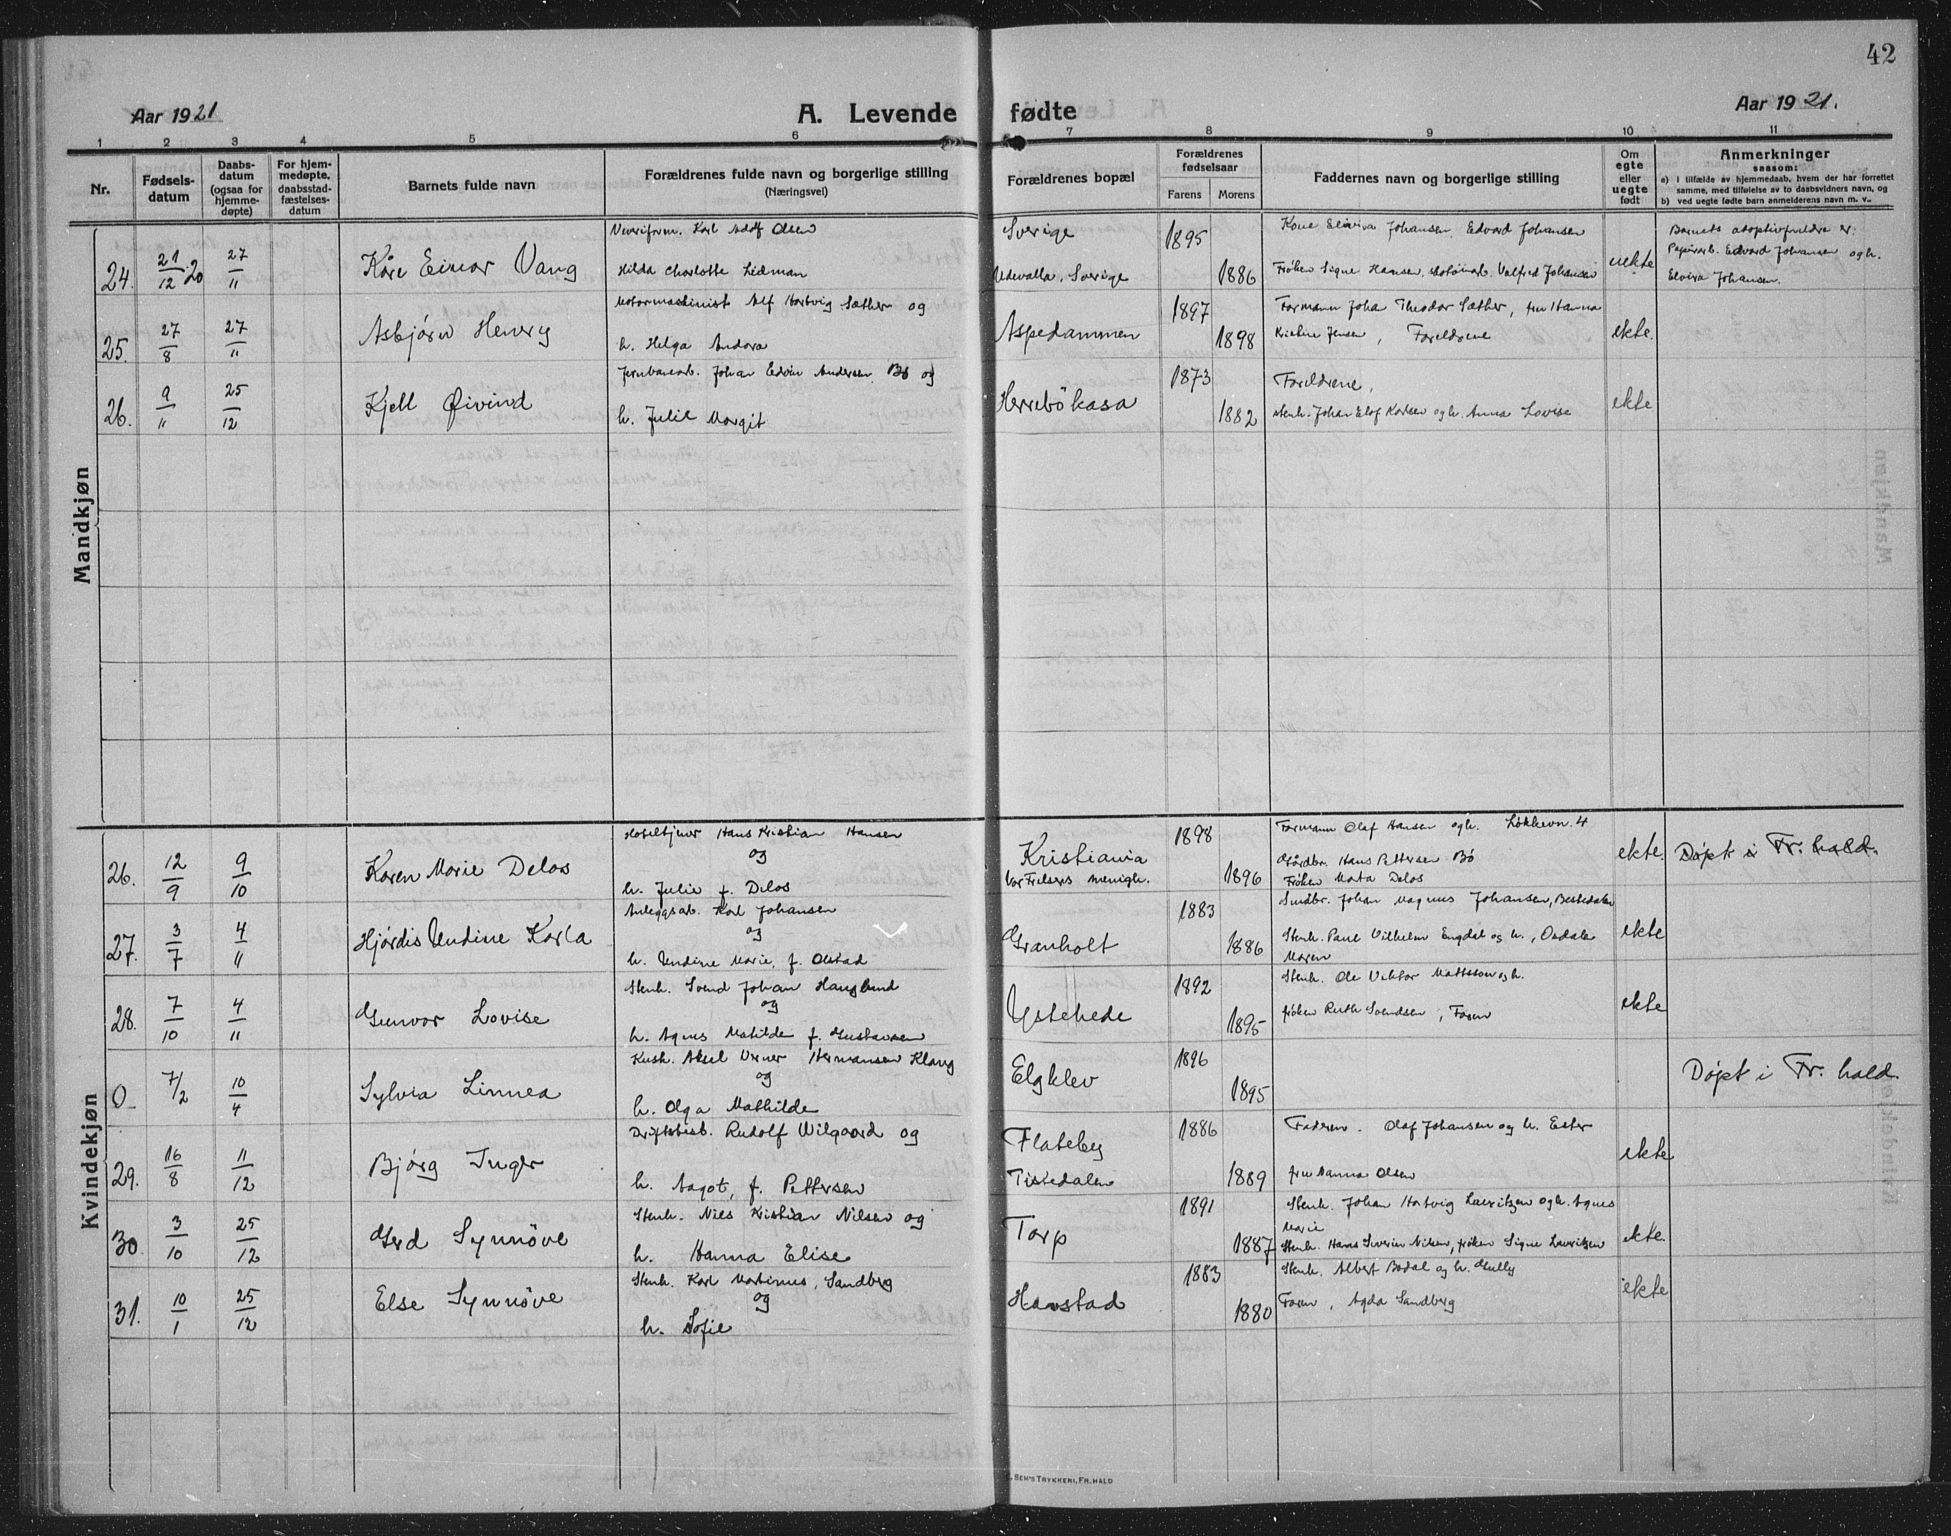 42
Aar 1921
A. Levende fødte
Aar 1921.
1 2 3 4 5 6 7 8 9 10 11
Nr.
Fødselsdatum
Daabsdatum (ogsaa for hjemmedøpte)
For hjemmedøpte, daabsstadfæstelsesdatum
Barnets fulde navn
Forældrenes fulde navn og borgerlige stilling
(Næringsvei)
Forældrenes bopæl
Forældrenes fødselsaar
Farens Morens
Faddernes navn og borgerlige stilling
Om egte eller uegte født
Anmerkninger
saasom:
a) i tilfælde av hjemmedaab, hvem der har forrettet samme, med tilføielse av to daabsvidners navn, og
b) ved uegte fødte barn anmelderens navn m. v.
Mandkjøn
24. 21/12 20 27/11 Kåre Einar Vang
Karl Adolf Olsen
Hilda Charlotte Lidman
Sverige
Udevalla, Sverige
1895
1886
Kone Elvira Johansen, Edvard Johansen
Frøken Signe Hansen, Valfred Johansen
uekte
Barnets adoptivforeldre er:
Papirarb. Edvard Johansen og h.
Elvira Johansen.
25. 27/8 27/11 Asbjørn Henry
Motormaskinist Alf Hartvig Sæther og
h. Helga Andora
Aspedammen
1897
1898
Formann Joha Theodor Sæther, fru Hanna
Kristine Jensen, Foreldrene
ekte.
26. 9/11 25/12 Kjell Øivind
Jernbanearb. Johan Edvin Andersen Bø og
h. Julie Margit
Herrebökasa
1873
1882
Foreldrene,
stenh. Johan Elof Karlsen og h. Anna Lovise
ekte
Kvindekjøn
26. 12/9 9/10 Karen Marie Delos
Hoteltjener Hans Kristian Hansen
og
h. Julie f. Delos
Kristiania
Vor Frelsers menigh.
1898
1896
Formann Olaf Hansen og h. Løkkevn. 4
Gårdbr. Hans Pettersen Bø
Frøken Marta Delos
ekte.
Døpt i Fr. hald.
27. 3/7 4/11 Hjördis Undine Karla
Anleggsarb. Karl Johansen
og
h. Undine Marie, f. Olstad
Granholt
1883
1886
Småbr. Johan Magnus Johansen, Bestedalen
Stenh. Paul Vilhelm Engdal og h., Oxdalen
Maren
ekte
28. 7/10 4/11 Gunvor Lovise
Stenh. Svend Johan Hauglund
og
h. Agnes Mathilde f. Gustavsen
Ystehede
1892
1895
Stenh. Ole Viktor Mattsson og h.
frøken Ruth Svendsen, Faren
ekte
0 7/2 10/4 Sylvia Linnea
Kusk. Aksel Verner Hermansen Klang
og
h. Olga Mathilde
Elgklev
1896
1895
Døpt i Fr. hald.
29. 16/8 11/12 Bjørg Inger
Driftsbest. Rudolf Wilgaard og
h. Aagot, f. Pettersen
Flateby
Tistedalen
1886
1889
Faderen. Olaf Johansen og h. Ester
fru Nanna Olsen
ekte
30. 3/10 25/12 Gerd Synnöve
Stenh. Niels Kristian Nilsen og
h. Hanna Elise
Torp
1891
1887
Stenh. Johan Hartvig Lauritzen og h. Agnes
Marie
Stenh. Hans Severin Nilsen, frøken Signe Lauritzen
ekte.
31. 10/1 25/12 Else Synnöve
Stenh. Karl Martinus Sandberg
og
h. Sofie
Hanstad
1883
1880
Stenh. Albert Bodal og h. Gully
Faren, Agda Sandberg
ekte
SEM'S TRYKKERI, FR.HALD